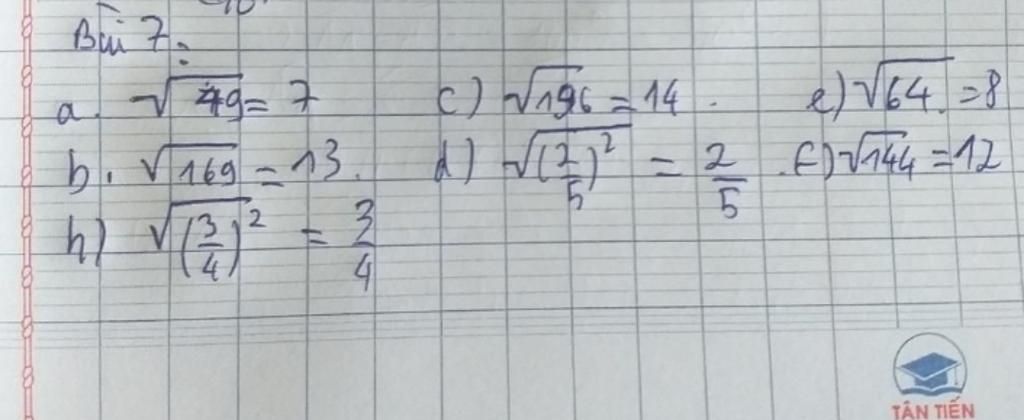 Bài 7:
a. √49 = 7 c) √196 = 14. e) √64 = 8
b. √169 = 13. d) √(2/5)² = 2/5 . f) √144 = 12
h) √(3/4)² = 3/4
TÂN TIẾN